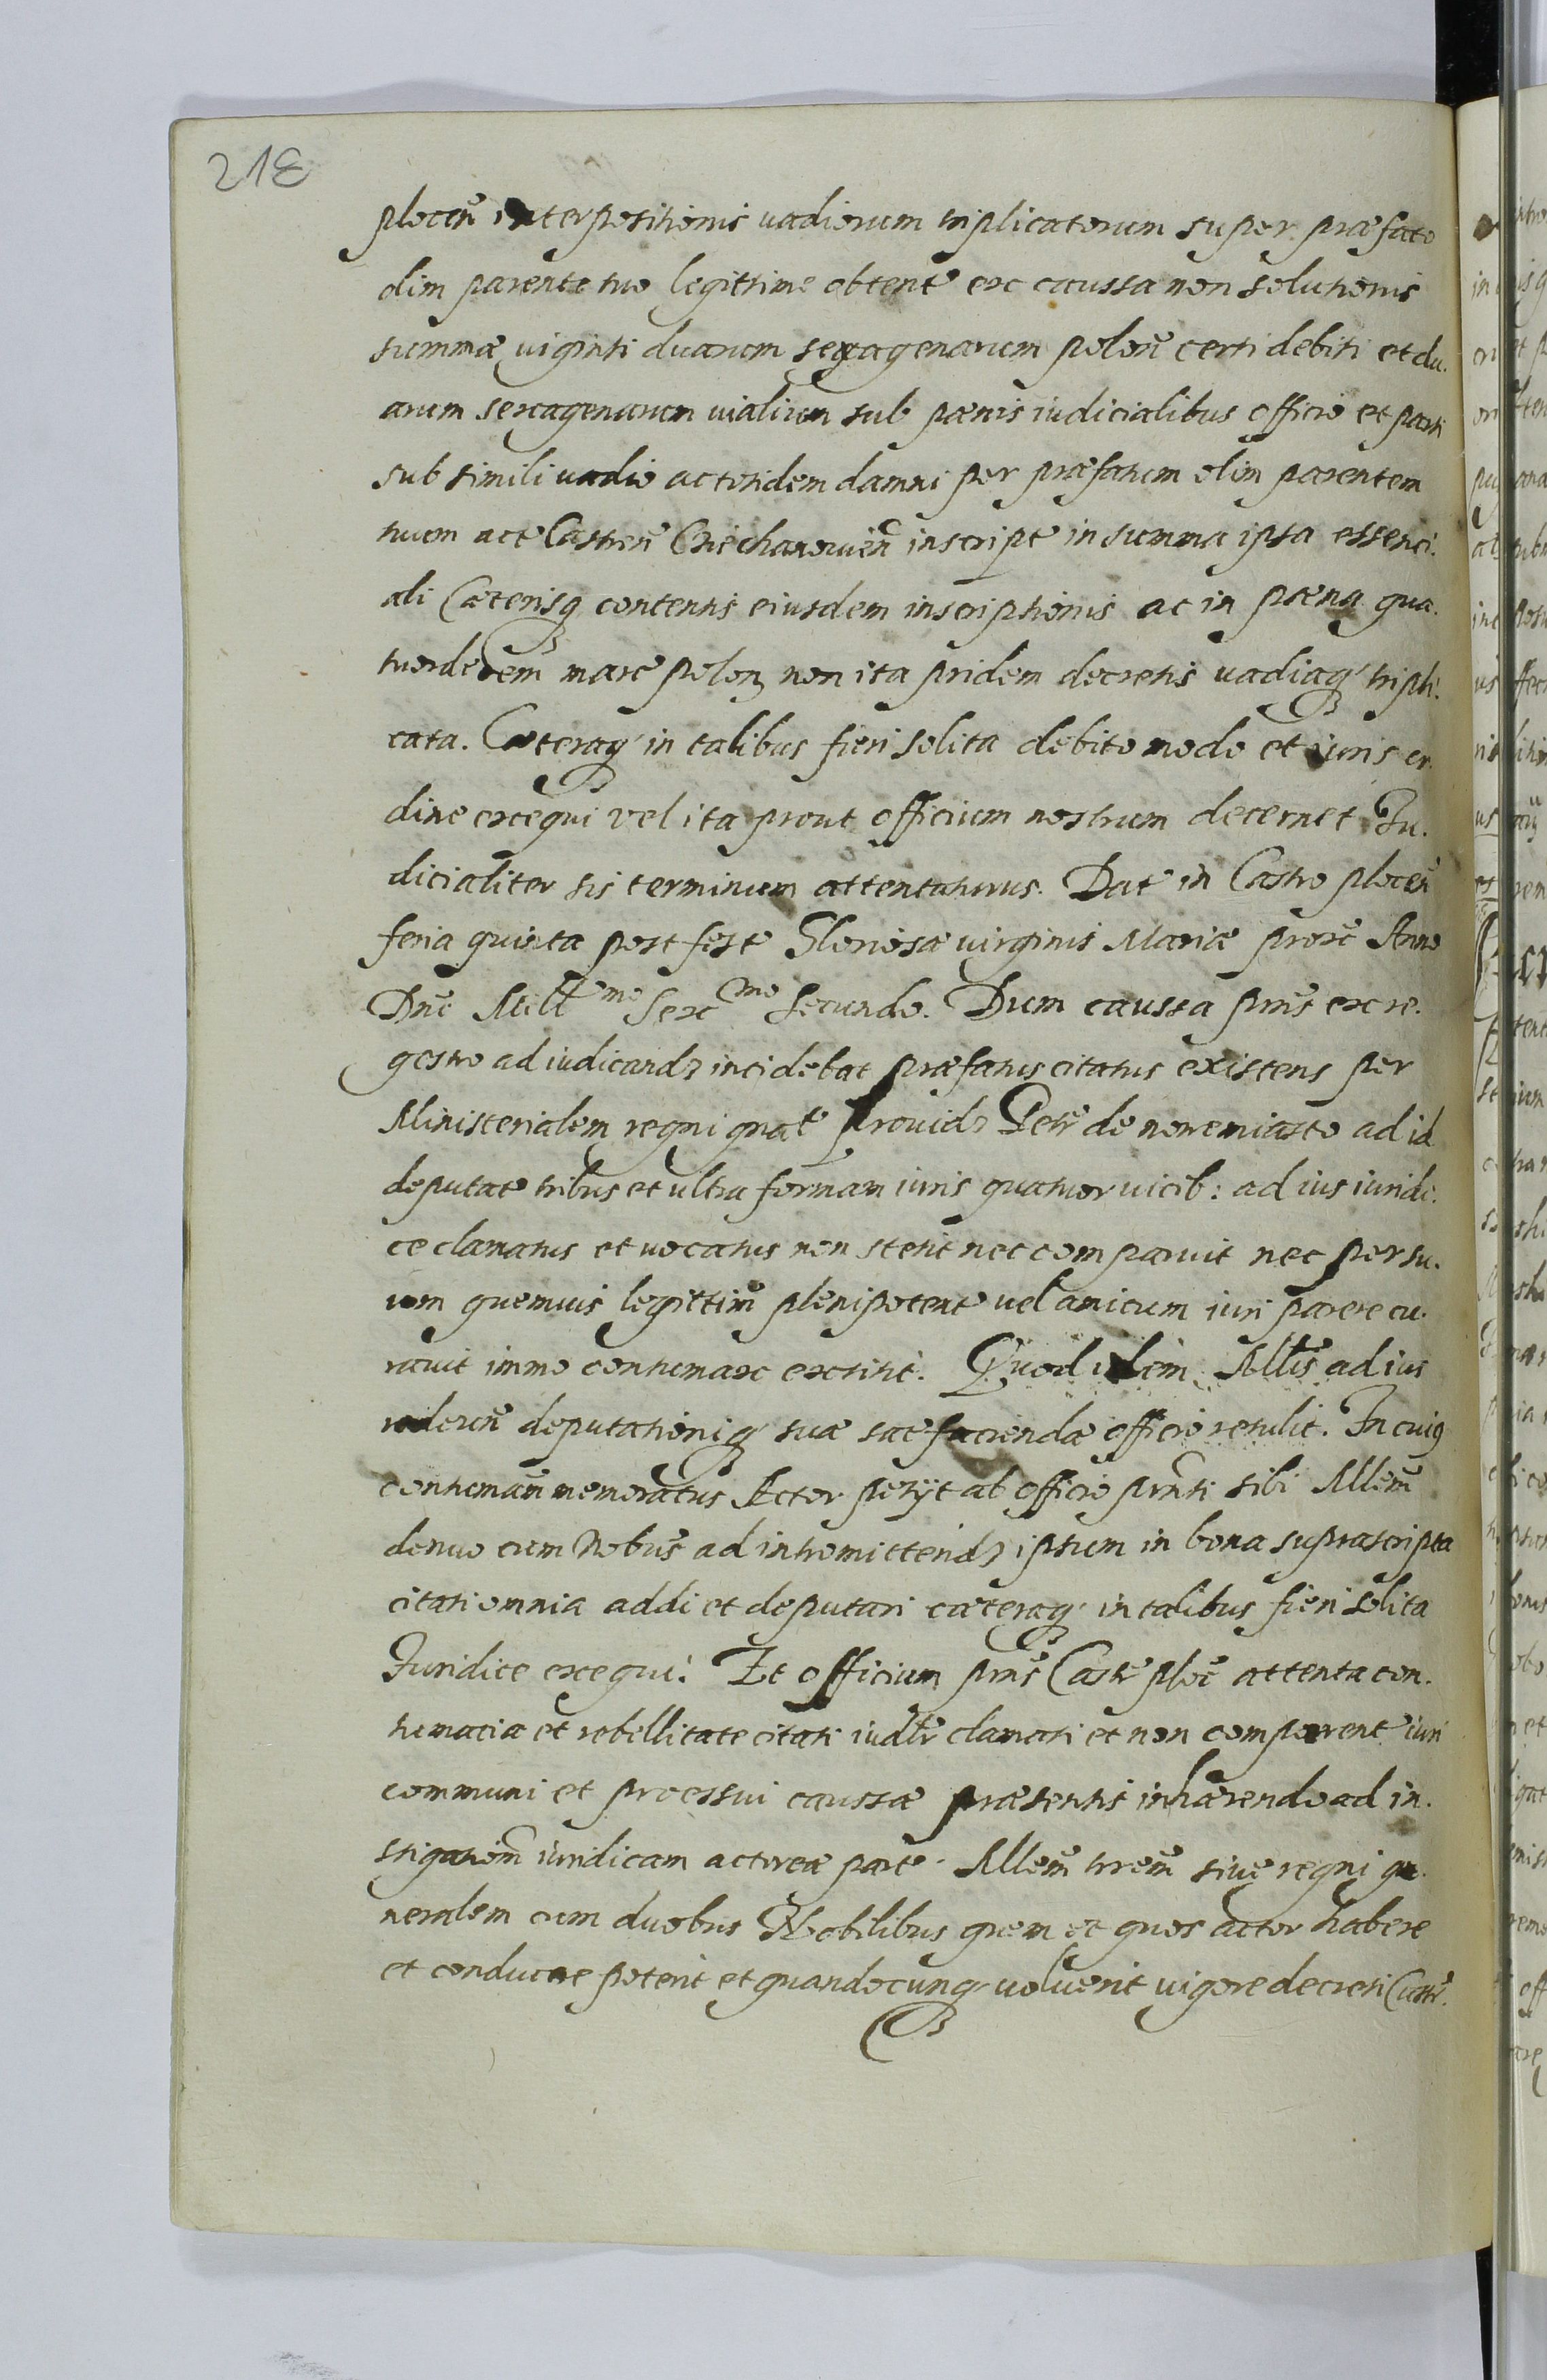 218
plocen̄ interpositionis uadiorum triplicatorum super præfato
olim parente tuo legittime obtent̃ ex caussa non solutionis
summæ uiginti duarum sexagenarum polon̄ certi debiti et du.
arum sexagenarum uialium sub pænis iudicialibus officio et parti
sub simili uadio ac totidem damni per præfatum olim parentem
tuum act̃ Castren̄ Ciechanouien̄ inscript̃ in summa ipsa essenci.
ali Cæterisq contentis eiusdem inscriptionis ac in pæna qua.
tuordecem marc̃ polon non ita pridem decretis uadiaq tripli.
cata. Cæteraq in talibus fieri solita debito modo et iuris or.
dine exequi vel ita prout officium nostrum decernet Iu.
dicialiter sis terminum attentaturus. Dat̃ in Castro plocen̄
feria quinta post fest̃ Gloriosæ virginis Mariæ prox̃ Anno
Dnī Mill̃mo Sexmo Secundo. Dum caussa pnīs ex re.
gestro ad iudicand incidebat præfatus citatus existens per
Ministerialem regni gnal̃ prouid Petr̃ de nouemiasto ad id
deputat̃ tribus et ultra formam iuris quatuor uicib: ad ius iuridi.
ce clamatus et uocatus non stetit nec comparuit nec per su.
um quemuis legittim̃ plenipotent̃ uel amicum iuri parere cu.
rauit immo contumax extitit. Quod idem Mltīs ad ius
rediēn deputationiq suæ satisfaciendæ officio retulit. In cuiq
contumam̃ memoratus Actor petijt ab officio pnti sibi Mllem̃
denuo cum Nobus̃ ad intromittend ipsum in bona suprascripta
citati omnia addi et deputari cæteraq in talibus fieri solita
Iuridice exequi. Et officium pnīs Castr̃ ploc̃ attenta con.
tumacia et rebellitate citati iudlr̃ clamati et non comparent̃ iuri
communi et processui caussæ præsentis inhærendo ad in.
stigatiom̃ iuridicam actoreæ part̃. Mllem̃ trēm siue regni ge.
neralem cum duobus Nobilibus quem et quos actor habere
et conducere poterit et quandocunq uoluerit uigore decreti Castr̃.